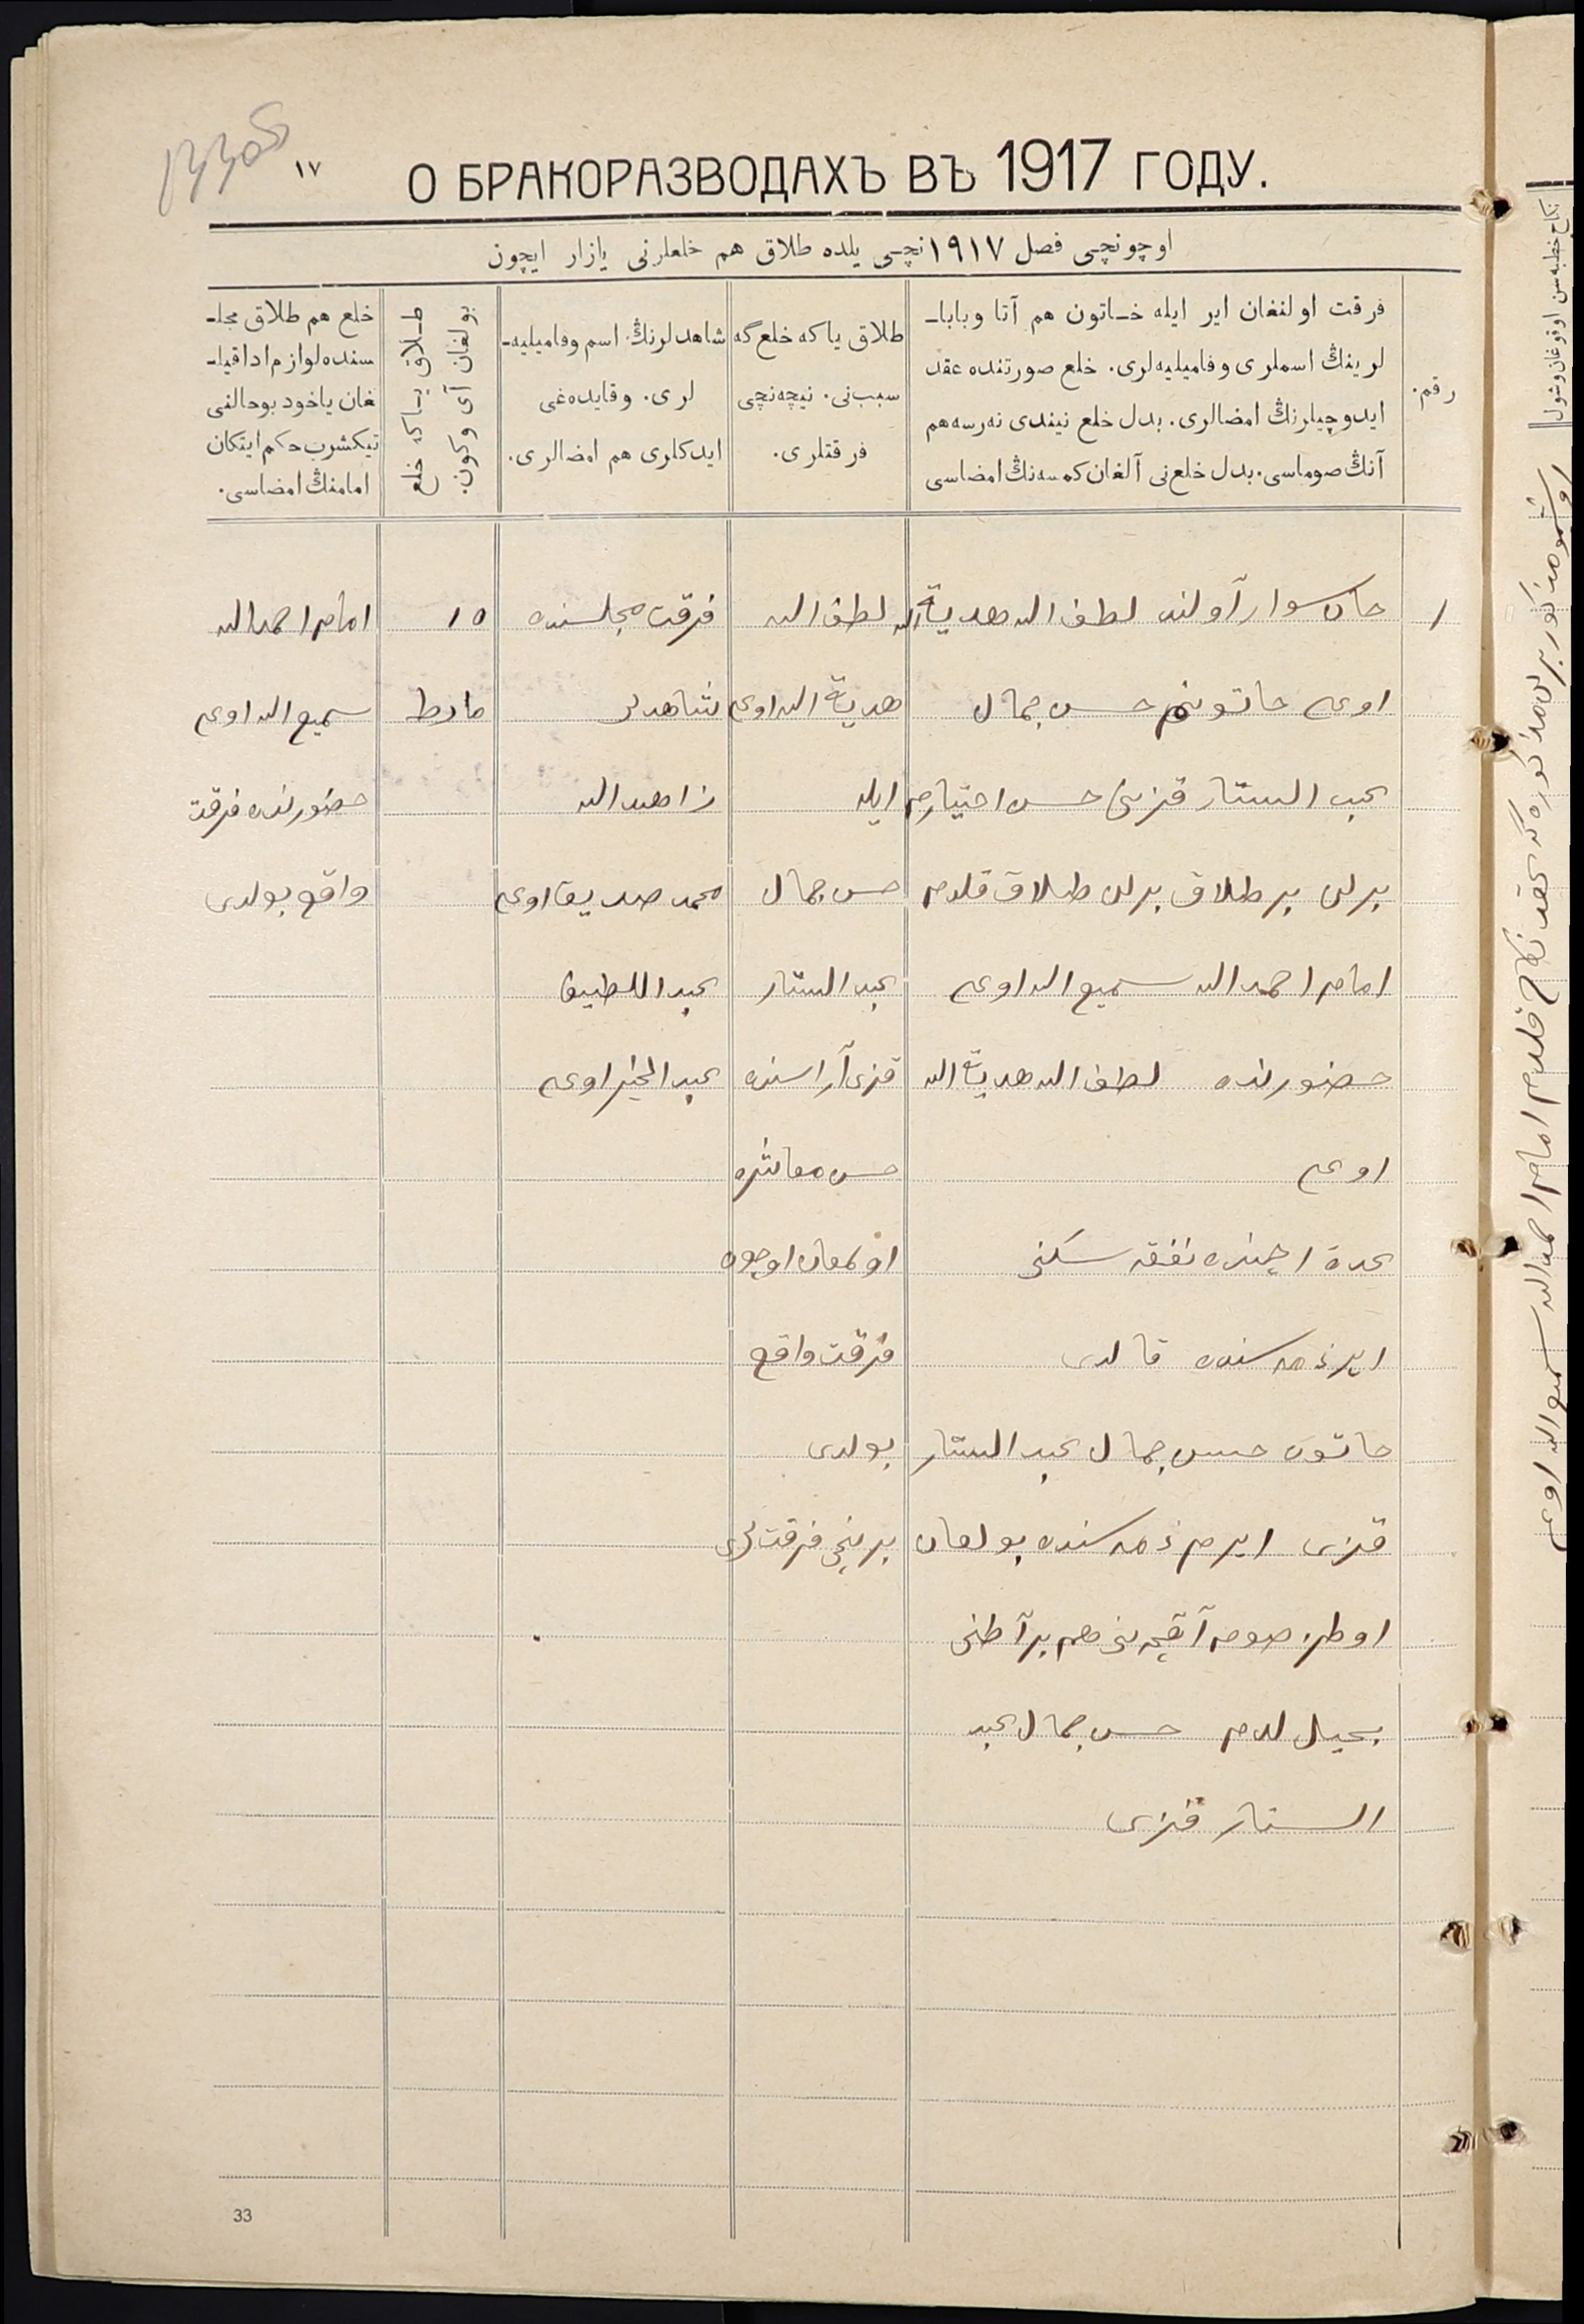 ١٧
О БРАКОРАЗВОДАХЪ ВЪ 1917 ГОДУ.
اوچونچی فصل ١٩١٧ نچی یلده طلاق هم خلعلرنی یازار ایچون
رقم.
فرقت اولنغان ایر ایله خاتون هم آتا وبابا-
لرینڭ اسملری وفامیلیه‌لری. خلع صورتنده عقد
ایدوچیلرنڭ امضالری. بدل خلع نیندی نه‌رسه هم
آنڭ صوماسی. بدل خلع‌نی آلغان کمسه‌نڭ امضاسی
طلاق یا که خلع گه
سبب‌نی. نیچه‌نچی
فرقتلری.
شاهدلرنڭ اسم وفامیلیه-
لری. وقایده‌غی
ایدکلری هم امضالری.
طلاق یاکه خلع
بولغان آی وکون.
خلع هم طلاق مجلـ-
سنده لوازم ادا قیلـ-
غان یاخود بوحالنی
تیکشرب حکم ایتکان
امامنڭ امضاسی.
١
آولنده لطف الله هدیة الله
اوغلی خاتونم حسن جمال
عبد الستار قزینی حسن اختیارم
برلن بر طلاق برلن طلاق قلدم
امام احمد الله سمیع الله اوغلی
حضورنده لطف الله هدیة الله
اوغلی
عدة اچنده نفقه سکنی
ایر ذمه سنده قالدی
خاتون حسن جمال عبد الستار
قزی ایرم ذمه سنده بولغان
اوطز صوم آقچه‌نی هم بر آطنی
حسن جمال عبد
الستار قزی
لطف الله
هدیة الله اوغلی
ایله
حسن جمال
عبد الستار
قزی آراسنده
حسن معاشره
اولمغان اوچون
فرقت واقع
بولدی
برنچی فرقت لری
فرقت مجلسنده
شاهدلر
زاهد الله
محمد صدیق اوغلی
عبد اللطیف
عبد الخبیر اوغلی
١٥
مارط
امام احمد الله
سمیع الله اوغلی
حضورنده فرقت
واقع بولدی
33
نکاح خطبه‌سن اوقوغان وشول